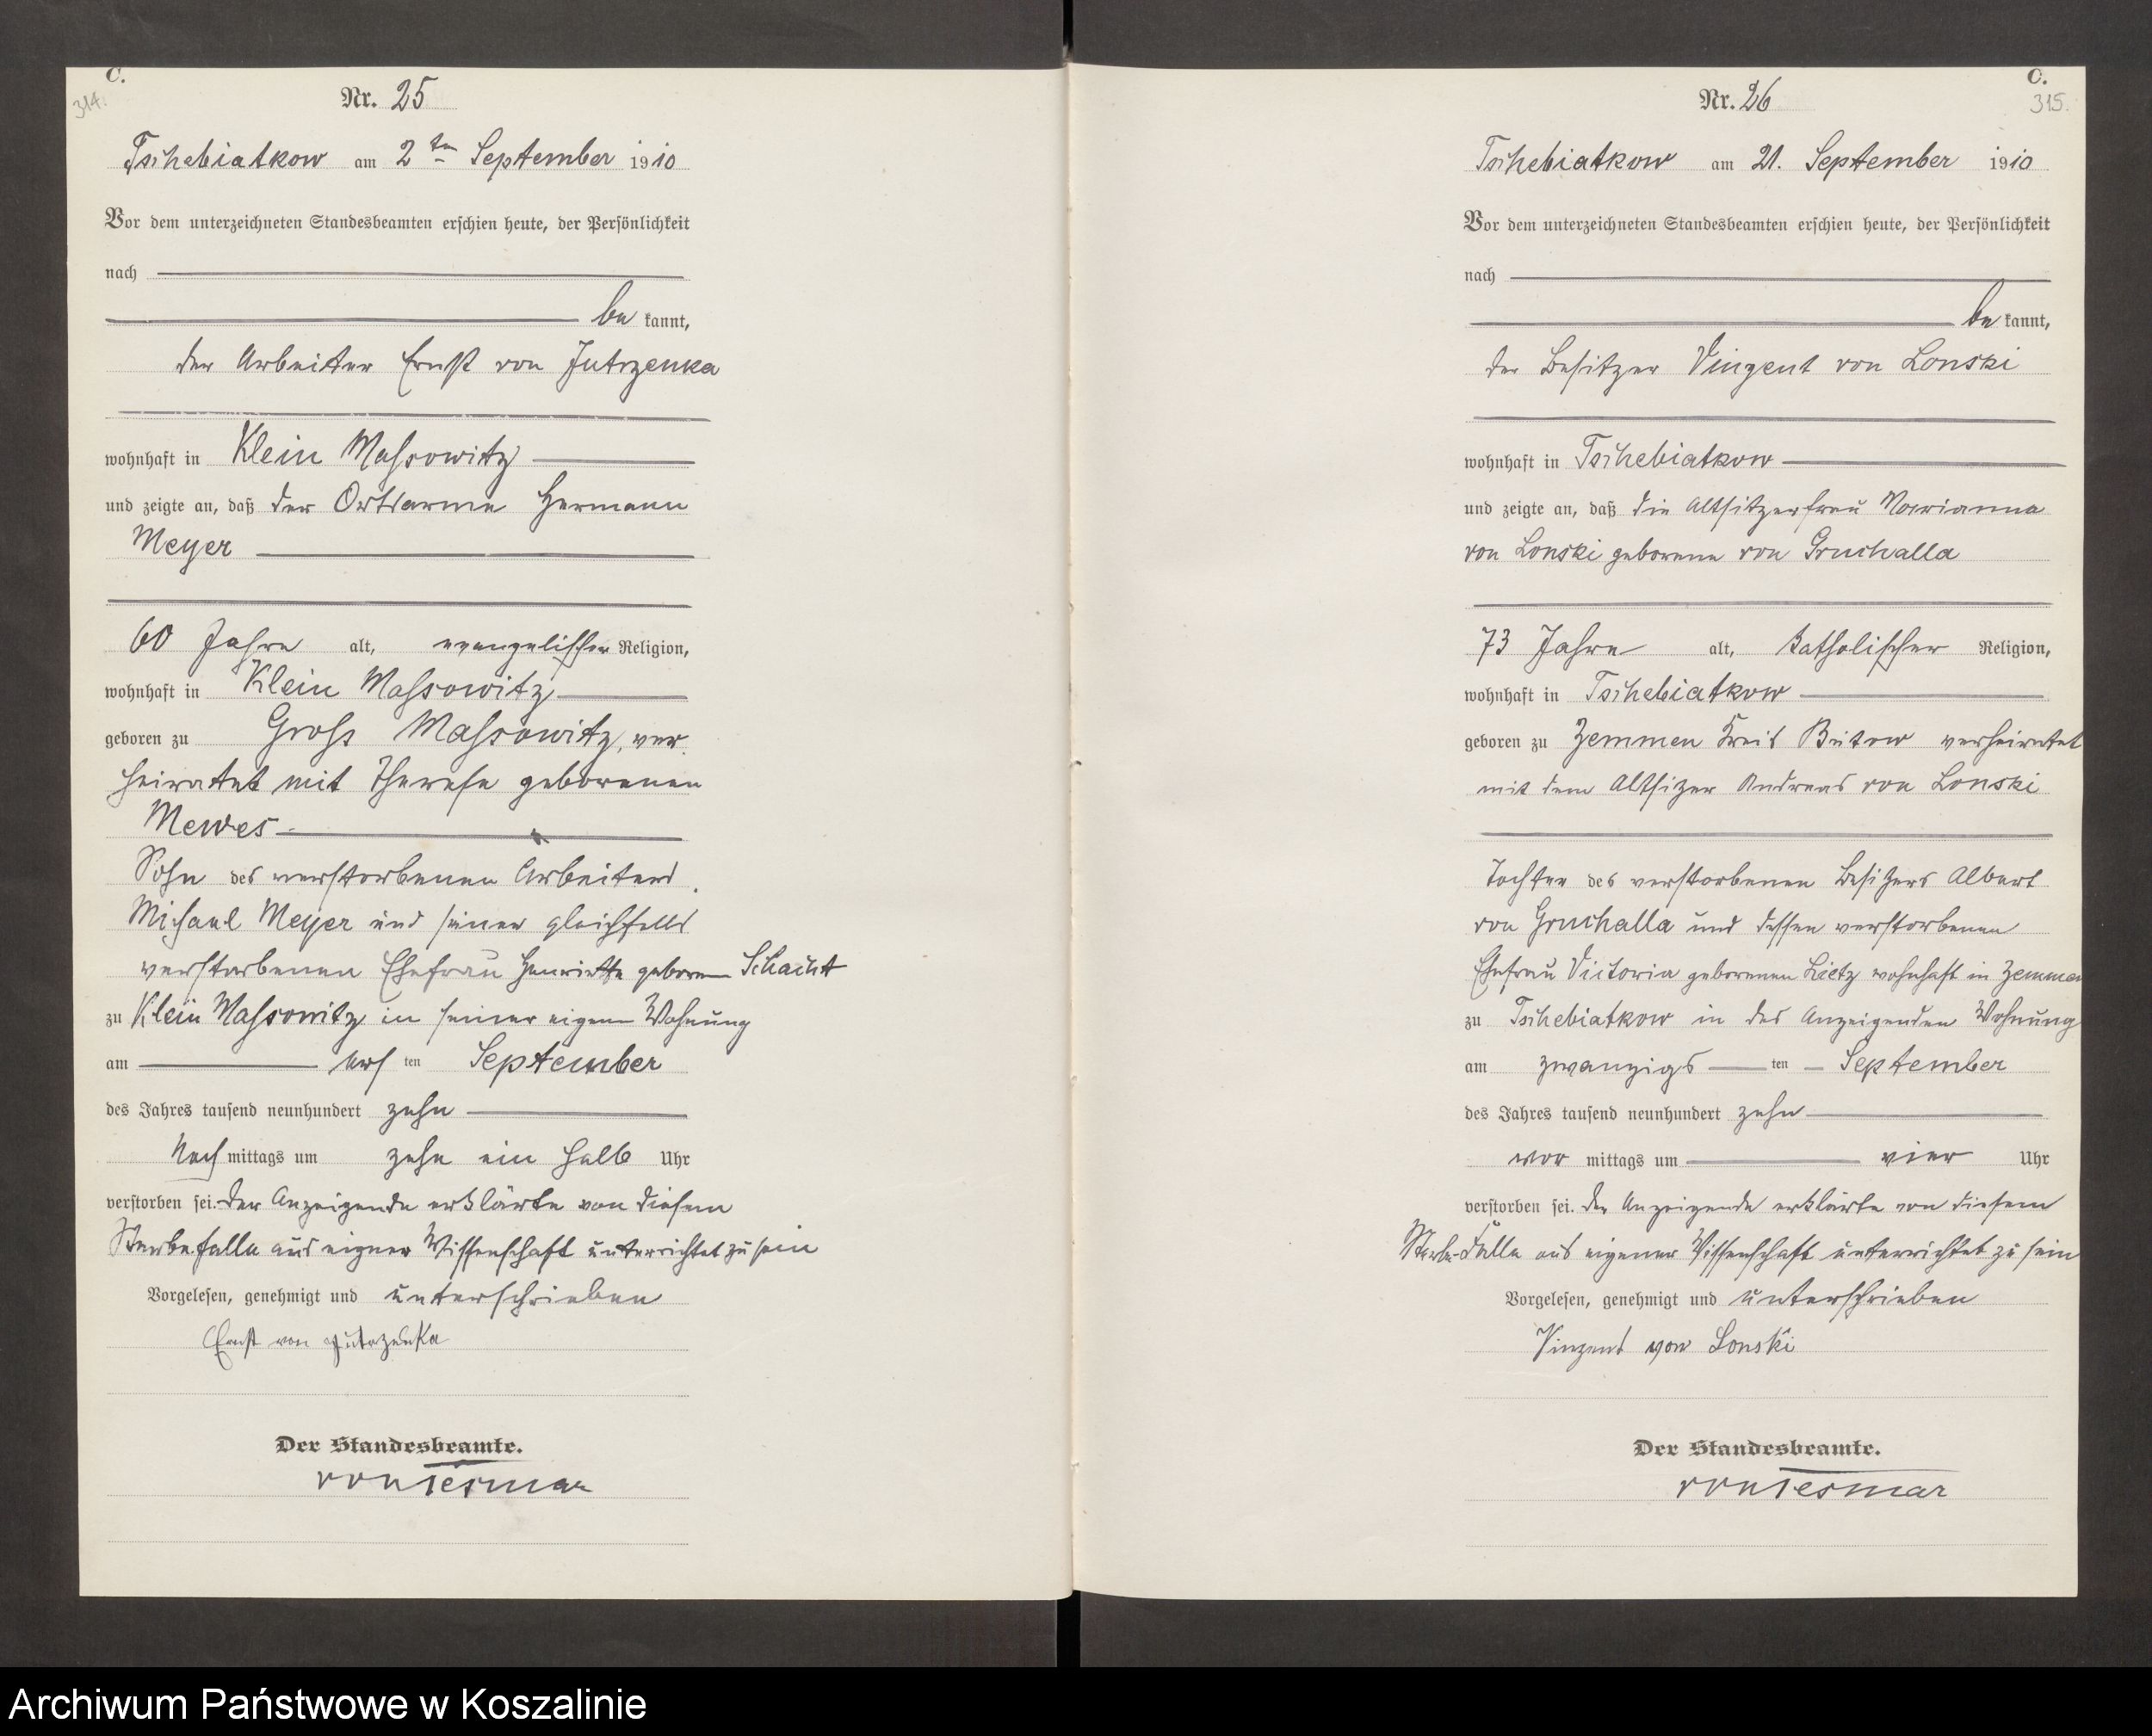 C.
314.
Nr. 25
Tschebiatkow am 2ten September 1910
Vor dem unterzeichneten Standesbeamten erschien heute, der Persönlichkeit
nach
be kannt,
der Arbeiter Ernst von Jutrzenka
wohnhaft in Klein Massowitz
und zeigte an, daß der Ortsarme Hermann
Meyer
60 Jahre alt, evangelischer Religion,
wohnhaft in Klein Massowitz
geboren zu Gross Massowitz, ver
heiratet mit Therese geborenen
Mewes
Sohn des verstorbenen Arbeiters
Michael Meyer und seiner gleichfalls
verstorbenen Ehefrau Henriette geboren Schacht
zu Klein Massowitz in seiner eigen Wohnung
am ers ten September
des Jahres tausend neunhundert zehn
Nach mittags um zehn ein halb Uhr
verstorben sei. Der Anzeigende erklärte von diesem
Sterbefalle aus eigner Wissenschaft unterrichtet zu sein
Vorgelesen, genehmigt und unterschrieben
Ernst von Jutrzenka
Der Standesbeamte.
von Tesmar
C.
315.
Nr. 26
Tschebiatkow am 21. September 1910
Vor dem unterzeichneten Standesbeamten erschien heute, der Persönlichkeit
nach
be kannt,
der Besitzer Vinzent von Lonski
wohnhaft in Tschebiatkow
und zeigte an, daß die Altsitzerfrau Marianna
von Lonski geborene von Gruchalla
73 Jahre alt, katholischer Religion,
wohnhaft in Tschebiatkow
geboren zu Zemmen Kreis Bütow verheiratet
mit dem Altsizer Andreas von Lonski
Tochter des verstorbenen Besitzers Albert
von Gruchalla und dessen verstorbenen
Ehefrau Victoria geborenen Lietz wohnhaft in Zemmen
zu Tschebiatkow in des Anzeigenden Wohnung
am zwanzigs ten September
des Jahres tausend neunhundert zehn
vor mittags um vier Uhr
verstorben sei. Der Anzeigende erklärte von diesem
Sterbe-Falle aus eigener Wissenschaft unterrichtet zu sein
Vorgelesen, genehmigt und unterschrieben
Vinzent von Lonski
Der Standesbeamte.
von Tesmar
Archiwum Państwowe w Koszalinie